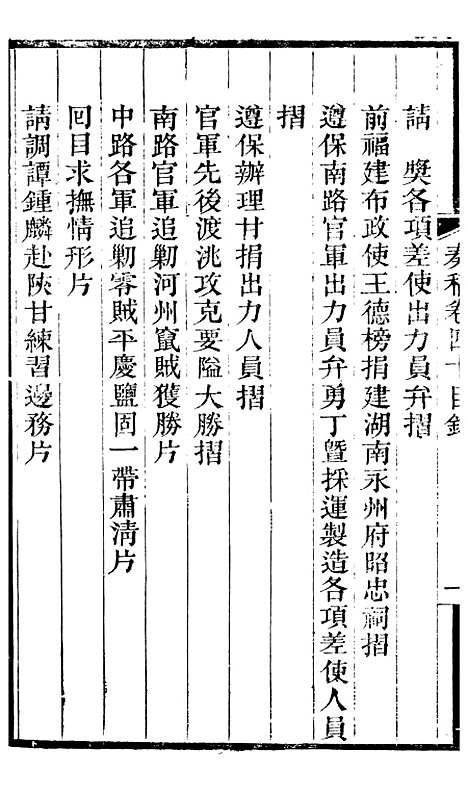 奏稿卷四十目錄 一
請 奬各項差使出力員弁摺
前福建布政使王德榜捐建湖南永州府昭忠祠摺
遵保南路官軍出力員弁勇丁暨採運製造各項差使人員
摺
遵保辦理甘捐出力人員摺
官軍先後渡洮攻克要隘大勝摺
南路官軍追勦河州竄賊獲勝片
中路各軍追勦零賊平慶鹽固一帶肅淸片
回目求撫情形片
請調譚鍾麟赴陝甘練習邊務片